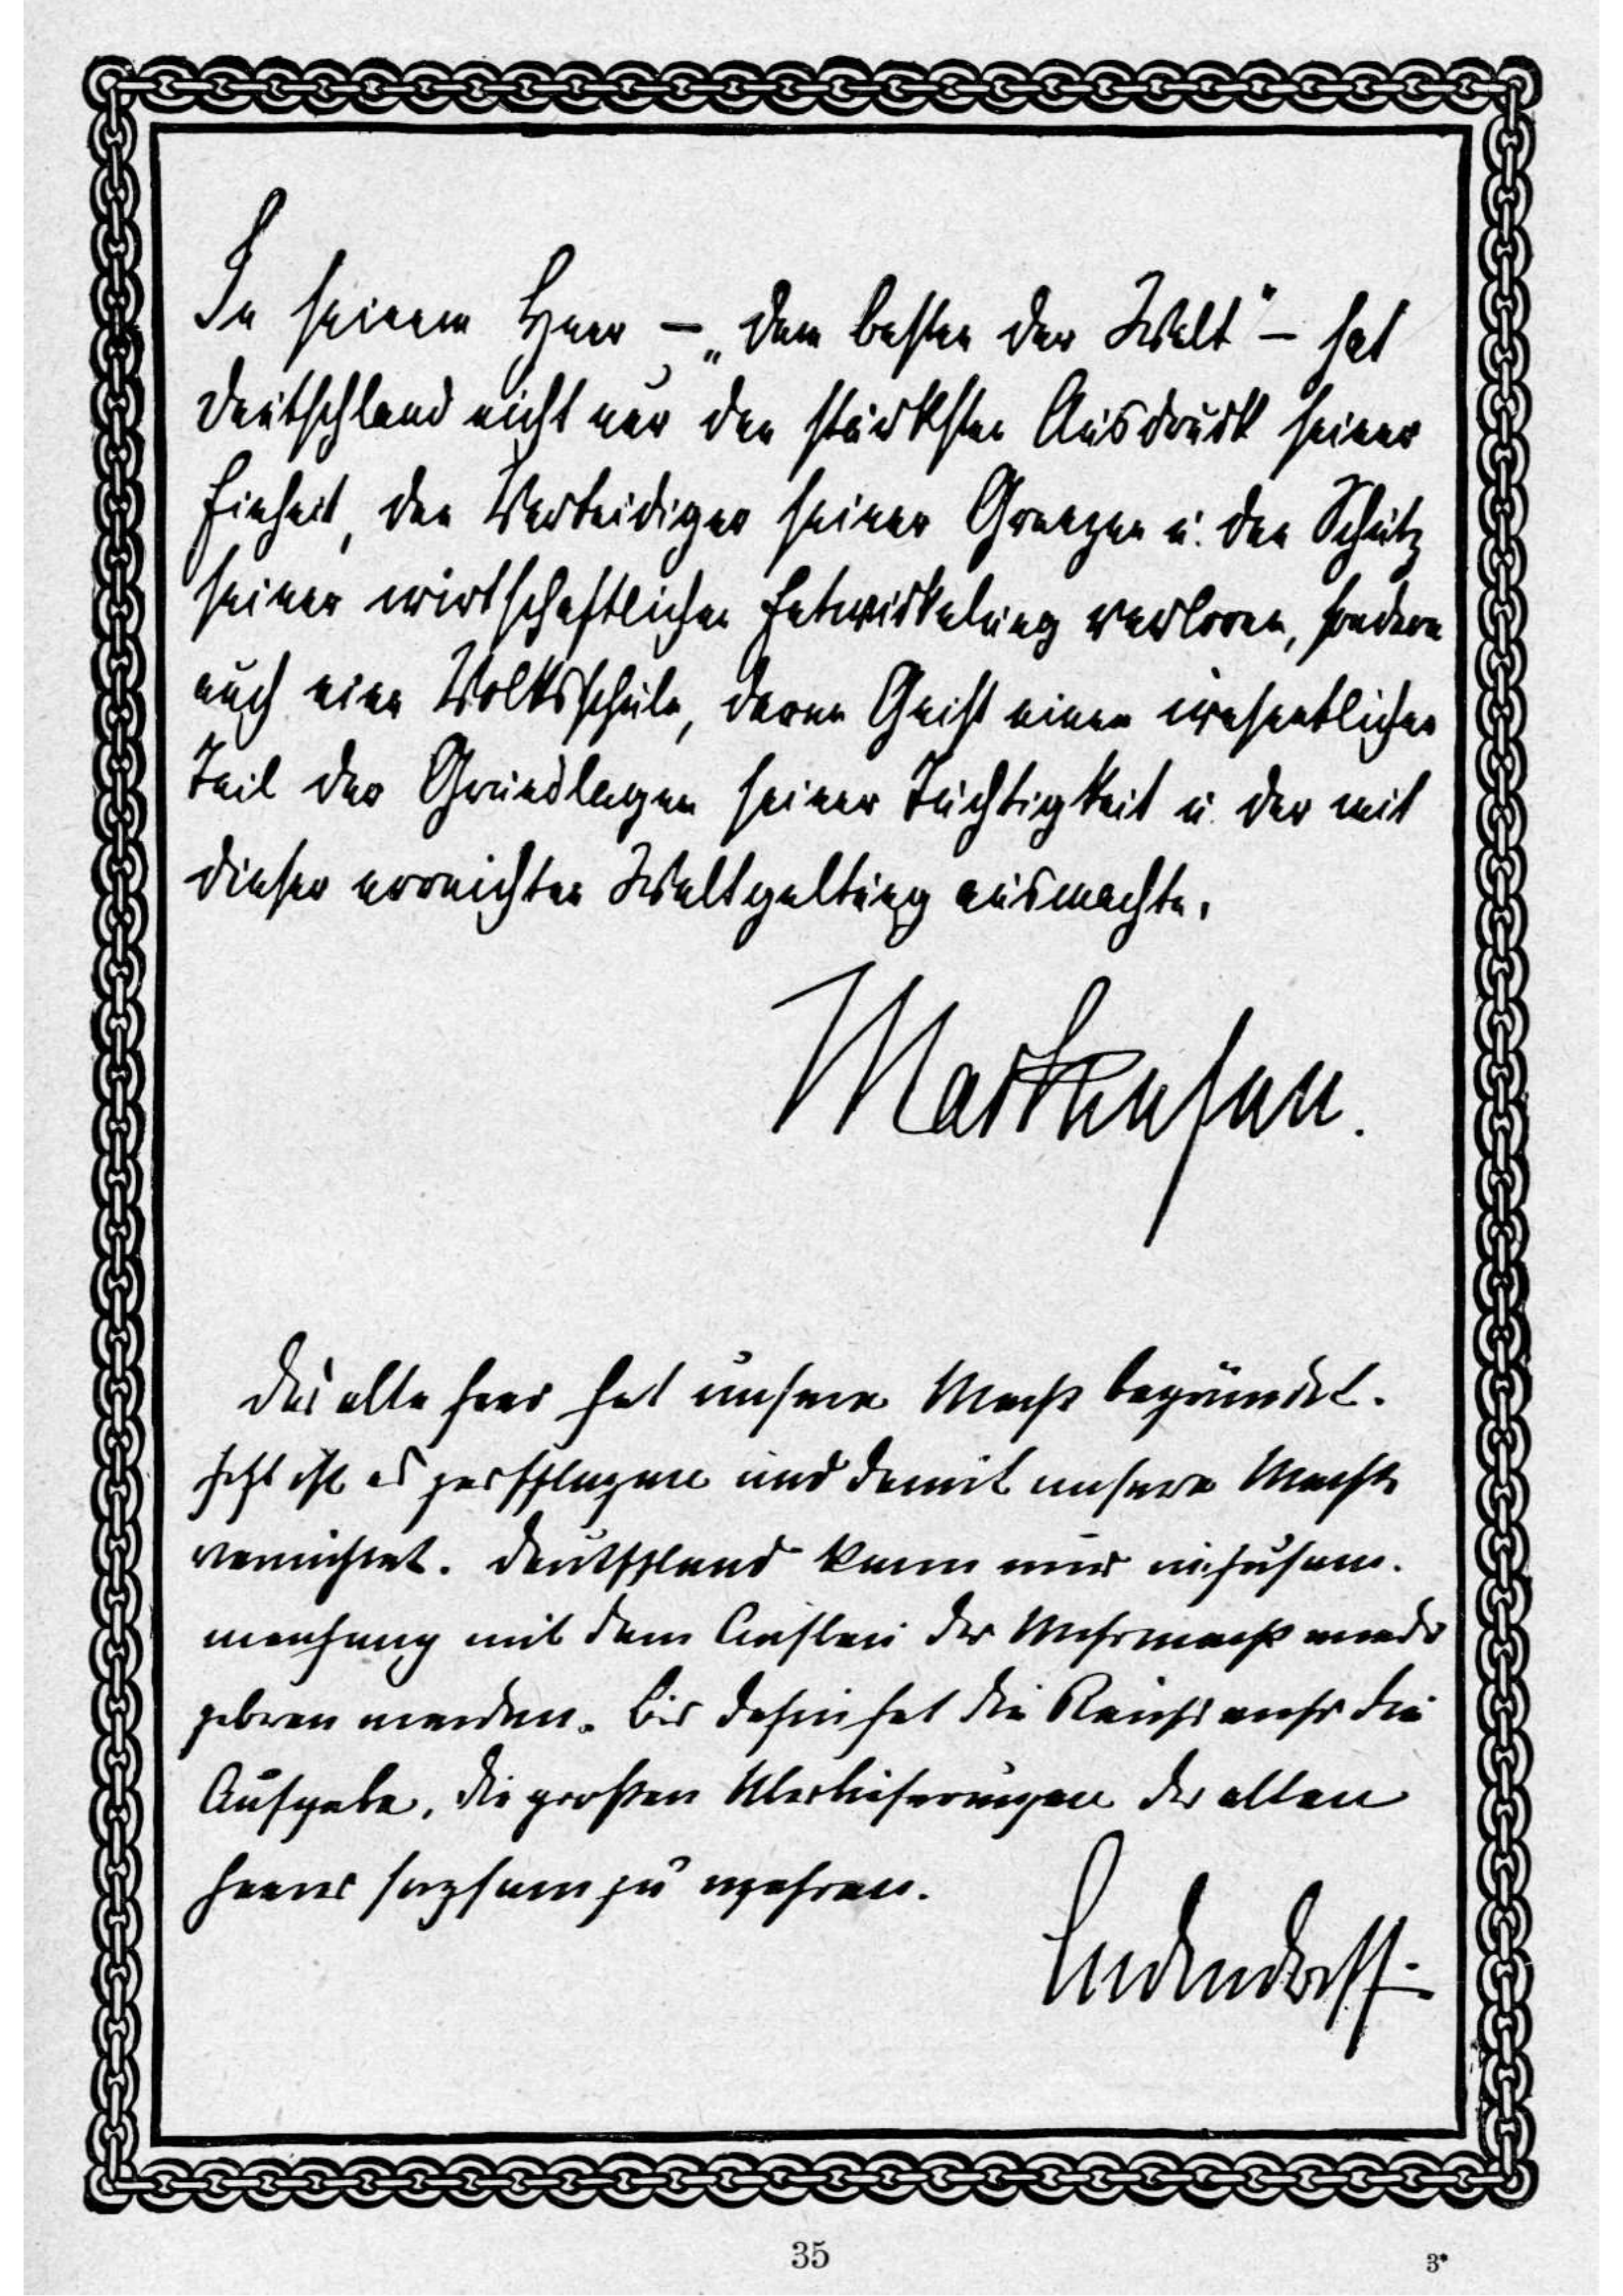 In seinem Heer – „dem besten der Welt“ – hat
Deutschland nicht nur den stärksten Ausdruck seiner
Einheit, den Verteidiger seiner Grenzen u. den Schutz
seiner wirtschaftlichen Entwickelung verloren, sondern
auch eine Volksschule, deren Geist einen wesentlichen
Teil der Grundlagen seiner Tüchtigkeit u. der mit
dieser erreichten Weltgeltung ausmachte.
Mackensen.
Das alte Heer hat unsere Macht begründet.
Jetzt ist es zerschlagen und damit unsere Macht
vernichtet. Deutschland kann nur in
mit dem Aufbau der Wehrmacht wieder
geboren werden. Bis dahin hat die Reichswehr die
Aufgabe, die großen Überlieferungen des alten
Heeres sorgsam zu wahren.
Ludendorff.
35
3*